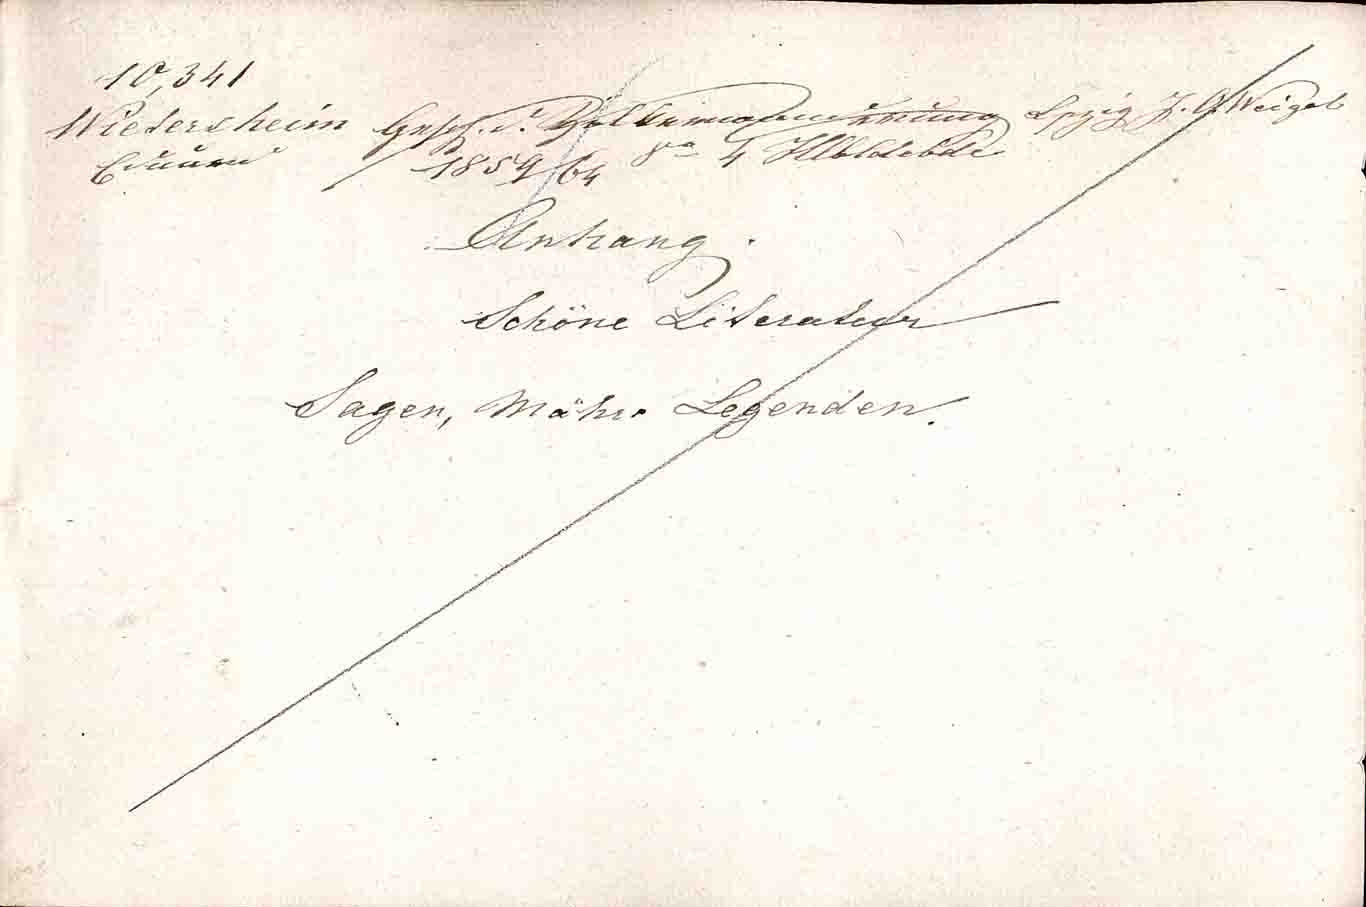 10,341
Wietersheim Gesch. d. Völkerwanderung Lpzig T. O. Weigel
Eduard 1859/64 8vo 4 Hlbldrbde
Anhang.
Schöne Literatur
Sagen, Mähr. Legenden.